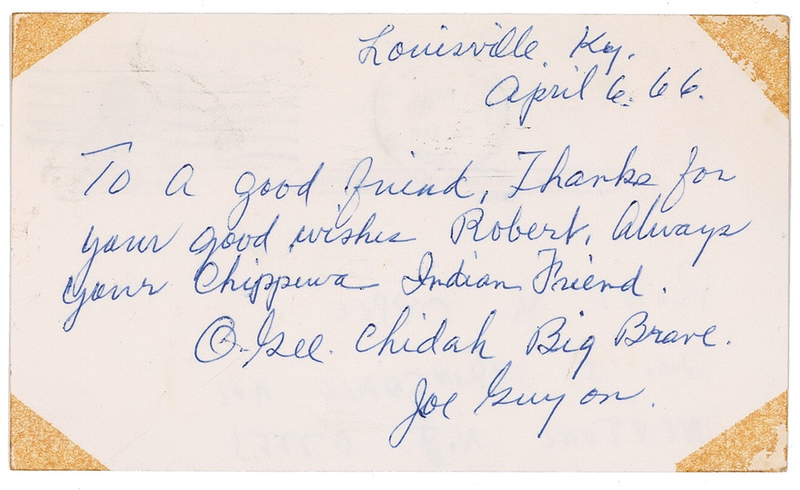 Louisville, Ky.
April 6. 66.
To a good friend, Thanks for
your good wishes Robert. Always
your Chippewa Indian Friend.
O-Gee. Chidah Big Brave.
Joe Guyon.